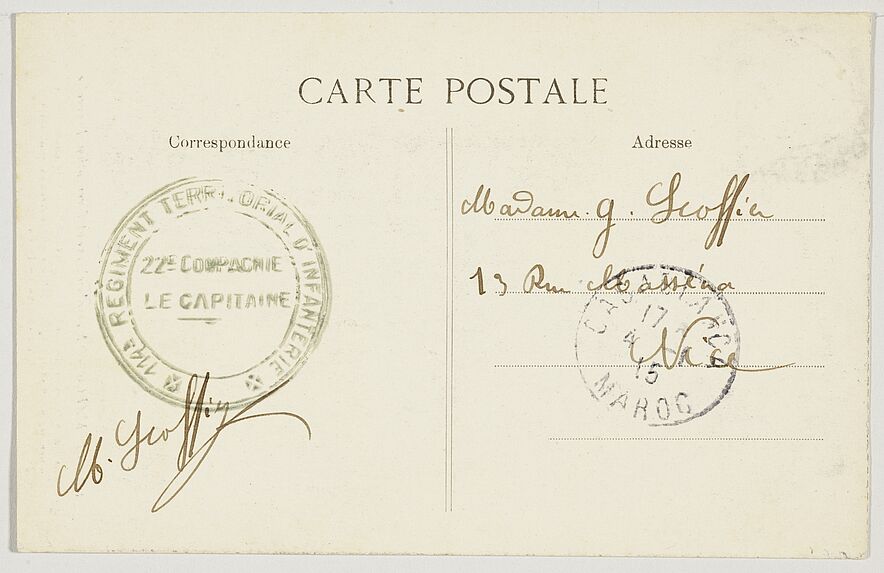 CARTE POSTALE
Correspondance
Adresse
114e REGIMENT TERRITORIAL D'INFANTERIE
22e COMPAGNIE
LE CAPITAINE
M. Scoffier
Madame. G. Scoffier
13 Rue Masséna
Nice
CASABLANCA
17
4
15
MAROC